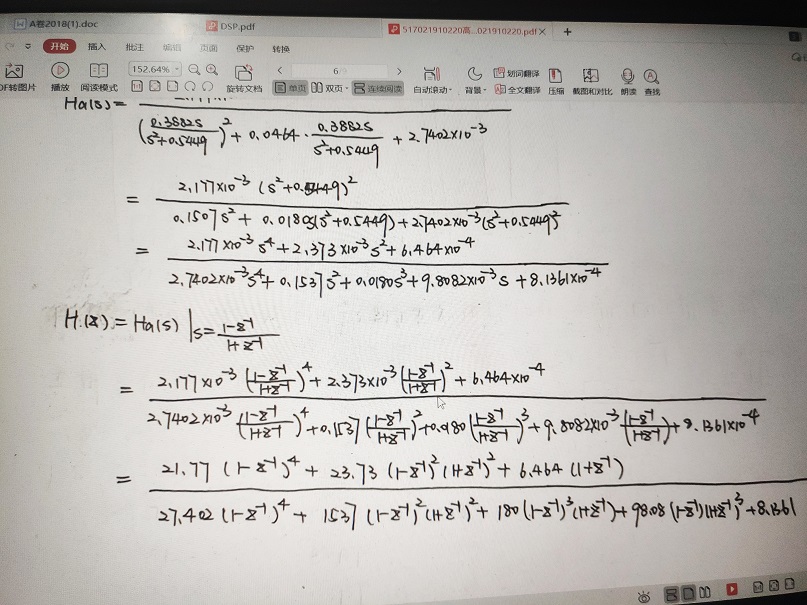 A卷2018(1).doc DSP.pdf 517021910220高...021910220.pdf × +
开始 插入 批注 编辑 页面 保护 转换
PDF转图片 播放 阅读模式 152.64% 旋转文档 6/ 单页 双页 连续阅读 自动滚动 背景 划词翻译 全文翻译 压缩 截图和对比 朗读 查找
Ha(s) = / (0.3882s/(s²+0.5449))² + 0.0464 · 0.3882s/(s²+0.5449) + 2.7402×10⁻³
= 2.177×10⁻³ (s²+0.5449)² / 0.1507s² + 0.0180s(s²+0.5449) + 2.7402×10⁻³(s²+0.5449)²
= 2.177×10⁻³s⁴ + 2.373×10⁻³s² + 6.464×10⁻⁴ / 2.7402×10⁻³s⁴ + 0.1537s² + 0.0180s³ + 9.8082×10⁻³s + 8.1361×10⁻⁴
H(z) = Ha(s) |s = (1-z⁻¹)/(1+z⁻¹)
= 2.177×10⁻³ ((1-z⁻¹)/(1+z⁻¹))⁴ + 2.373×10⁻³ ((1-z⁻¹)/(1+z⁻¹))² + 6.464×10⁻⁴ / 2.7402×10⁻³ ((1-z⁻¹)/(1+z⁻¹))⁴ + 0.1537 ((1-z⁻¹)/(1+z⁻¹))² + 0.0180 ((1-z⁻¹)/(1+z⁻¹))³ + 9.8082×10⁻³ ((1-z⁻¹)/(1+z⁻¹)) + 8.1361×10⁻⁴
= 21.77 (1-z⁻¹)⁴ + 23.73 (1-z⁻¹)²(1+z⁻¹)² + 6.464 (1+z⁻¹) / 27.402 (1-z⁻¹)⁴ + 1537 (1-z⁻¹)²(1+z⁻¹)² + 180 (1-z⁻¹)³(1+z⁻¹) + 98.08 (1-z⁻¹)(1+z⁻¹)³ + 8.1361